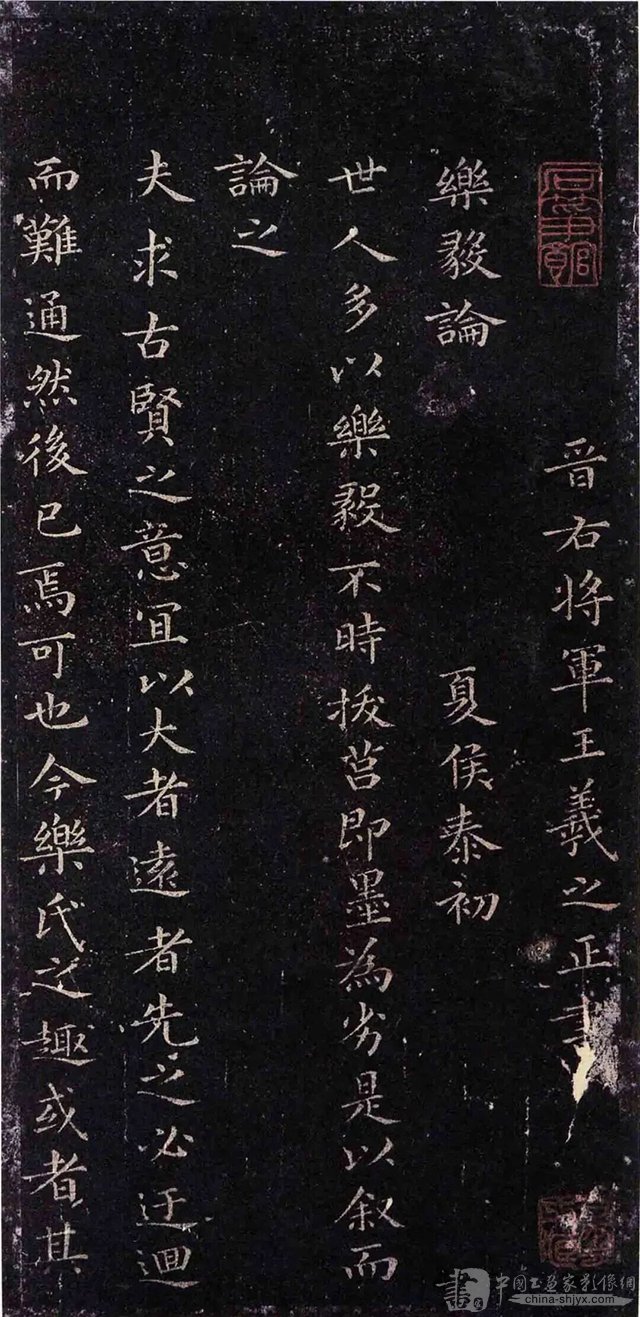 晉右将軍王羲之正書
樂毅論
夏侯泰初
世人多以樂毅不時拔莒即墨為劣是以叙而
論之
夫求古賢之意宜以大者遠者先之必迂迴
而難通然後已焉可也今樂氏之趣或者其
中国书画家影像網
china-shjyx.com